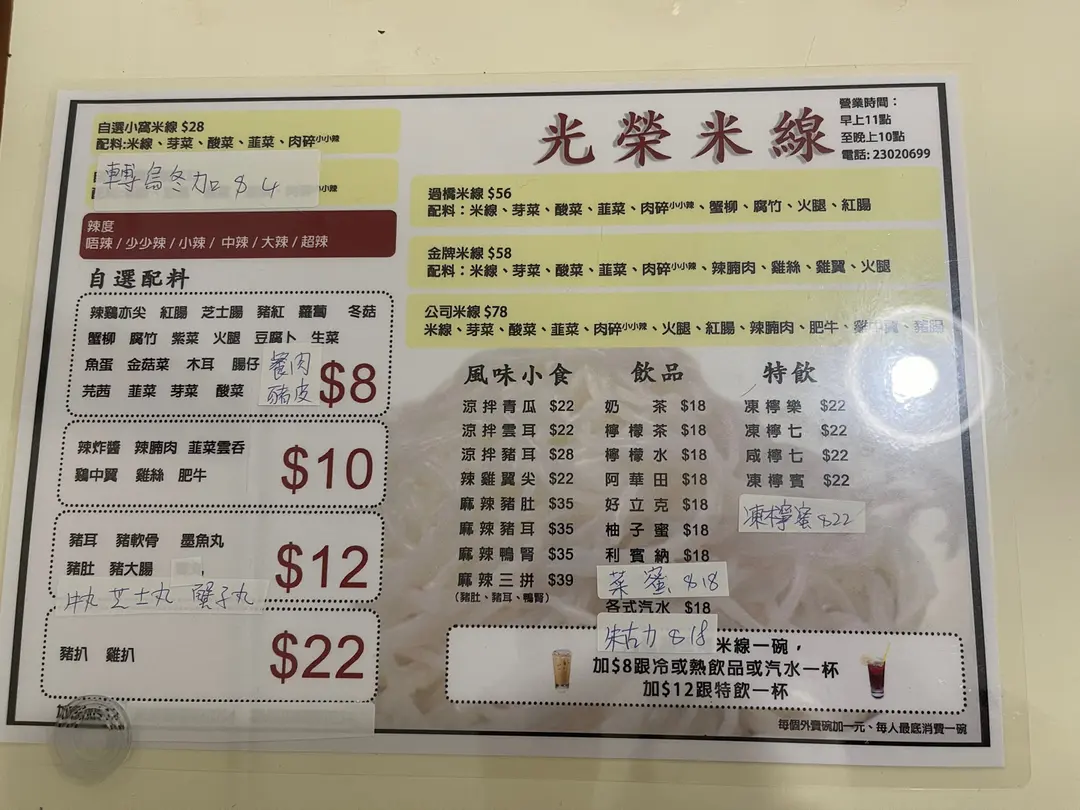 自選小窩米線 $28
配料:米線、芽菜、酸菜、韮菜、肉碎小小辣
轉烏冬加 $4
小辣
辣度
唔辣 / 少少辣 / 小辣 / 中辣 / 大辣 / 超辣
自選配料
辣鷄亦尖 紅腸 芝士腸 豬紅 蘿蔔 冬菇
蟹柳 腐竹 紫菜 火腿 豆腐卜 生菜
魚蛋 金菇菜 木耳 腸仔 餐肉
芫茜 韮菜 芽菜 酸菜 豬皮
$8
辣炸醬 辣腩肉 韮菜雲吞
鷄中翼 雞絲 肥牛
$10
豬耳 豬軟骨 墨魚丸
豬肚 豬大腸
$12
牛丸 芝士丸 蟹子丸
豬扒 雞扒
$22
光榮米線
營業時間：
早上11點
至晚上10點
電話: 23020699
過橋米線 $56
配料：米線、芽菜、酸菜、韮菜、肉碎小小辣、蟹柳、腐竹、火腿、紅腸
金牌米線 $58
配料：米線、芽菜、酸菜、韮菜、肉碎小小辣、辣腩肉、雞絲、雞翼、火腿
公司米線 $78
米線、芽菜、酸菜、韮菜、肉碎小小辣、火腿、紅腸、辣腩肉、肥牛、雞中翼、豬腸
風味小食
涼拌青瓜 $22
涼拌雲耳 $22
涼拌豬耳 $28
辣雞翼尖 $22
麻辣豬肚 $35
麻辣豬耳 $35
麻辣鴨腎 $35
麻辣三拼 $39
(豬肚、豬耳、鴨腎)
飲品
奶茶 $18
檸檬茶 $18
檸檬水 $18
阿華田 $18
好立克 $18
柚子蜜 $18
利賓納 $18
菜蜜 $18
各式汽水 $18
朱古力 $18
特飲
凍檸樂 $22
凍檸七 $22
咸檸七 $22
凍檸賓 $22
凍檸蜜 $22
米線一碗，
加$8跟冷或熱飲品或汽水一杯
加$12跟特飲一杯
每個外賣碗加一元、每人最底消費一碗